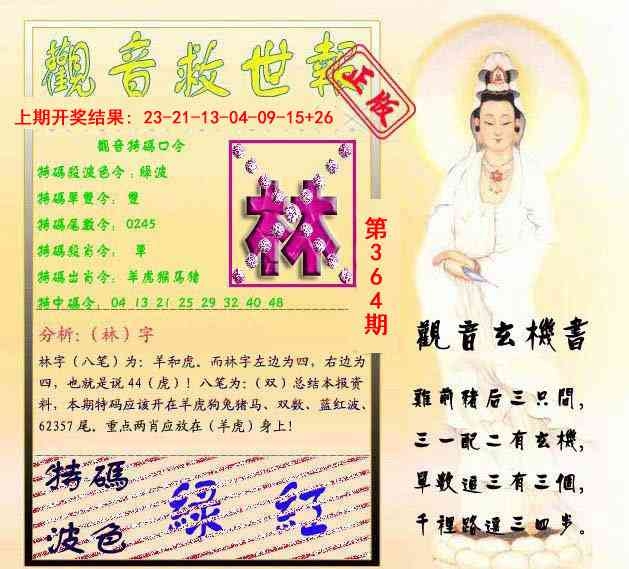 觀音救世報
正版
上期开奖结果：23-21-13-04-09-15+26
觀音特碼口令
特碼殺波色令：綠波
特碼單雙令： 雙
特碼尾數令： 0245
特碼殺肖令： 單
特碼出肖令：羊虎猴马猪
特中碼令： 04 13 21 25 29 32 40 48
林
第364期
分析:（林）字
林字（八笔）为：羊和虎。而林字左边为四，右边为
四，也就是说44（虎）！八笔为：（双）总结本报资
料，本期特码应该开在羊虎狗兔猪马、双数、蓝红波、
62357尾。重点两肖应放在（羊虎）身上！
特碼
波色
綠 紅
觀音玄機書
雞前豬后三只間，
三一配二有玄機，
單數過三有三個，
千裡路遠三四步。